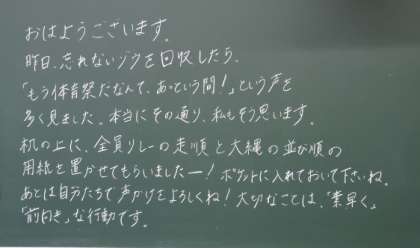 おはようございます。
昨日、忘れないジクを回収したら、
「もう体育祭だなんて、あっという間!」という声を
多く見ました。本当にその通り、私もそう思います。
机の上に、全員リレーの走順と大縄の並び順の
用紙を置かせてもらいましたー!ポケットに入れておいて下さいね。
あとは自分たちで声かけをよろしくね!大切なことは、「素早く」
「前向き」な行動です。